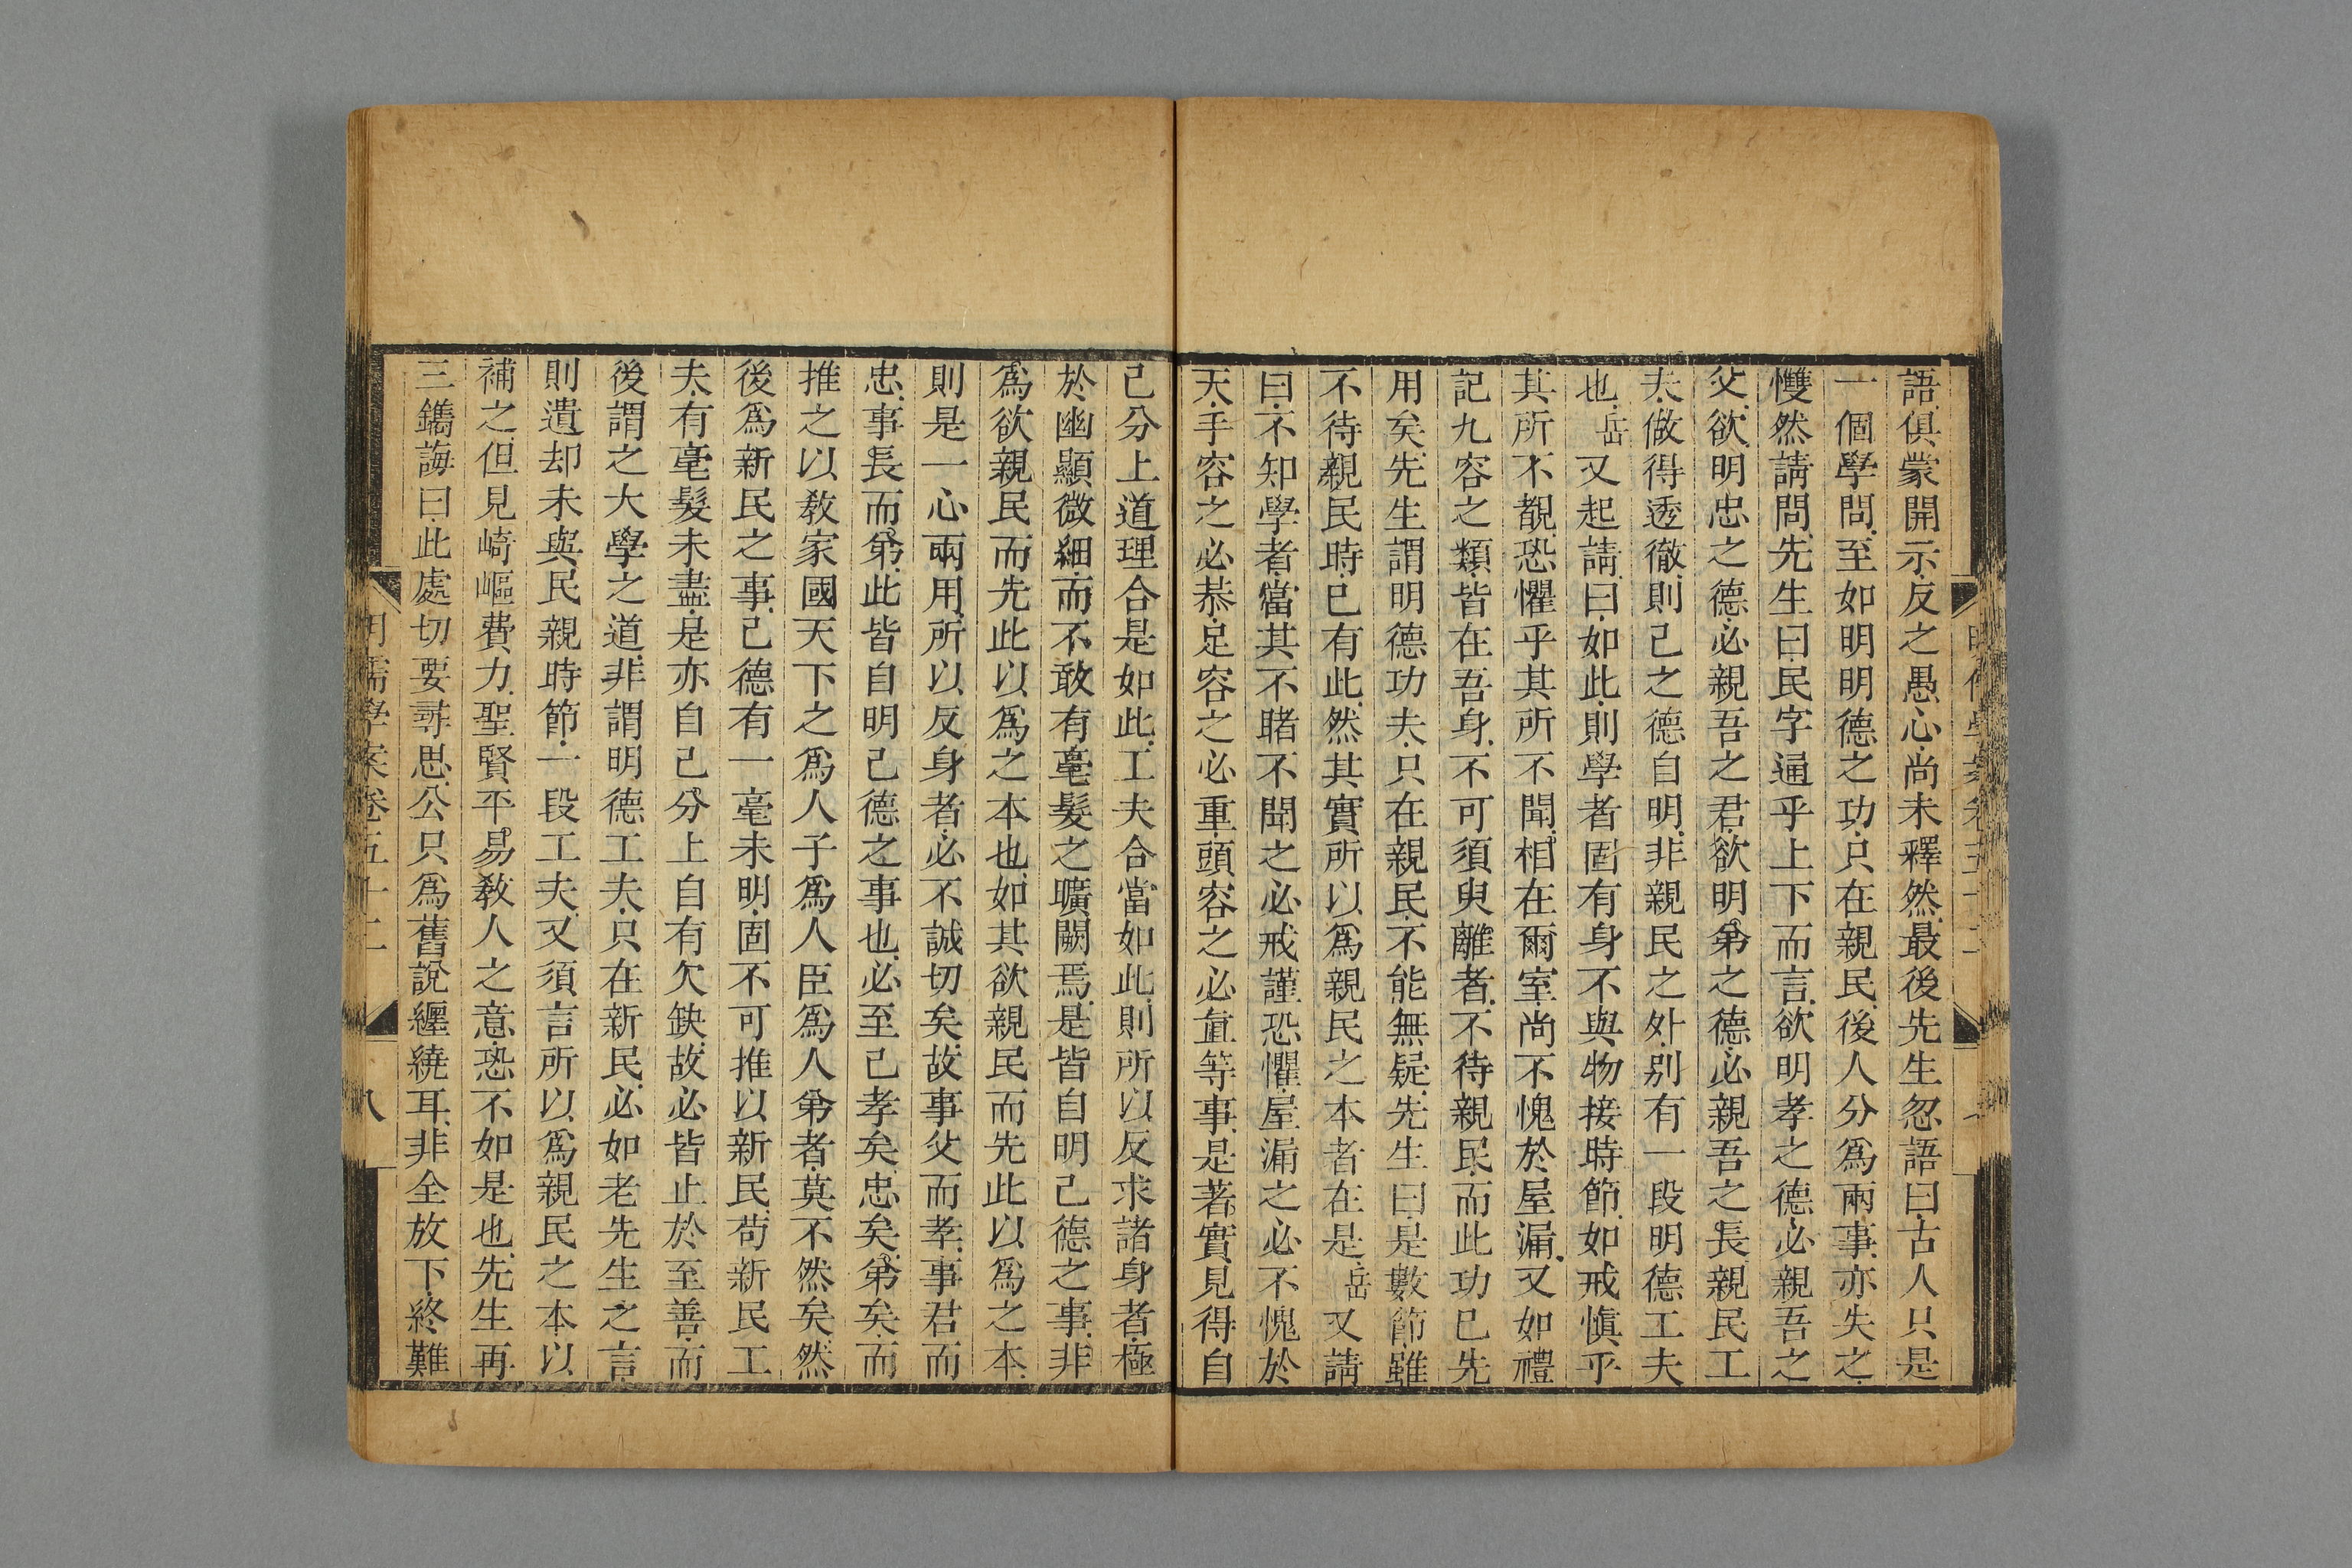 語俱蒙開示反之愚心尚未釋然最後先生忽語曰古人只是
一個學問至如明明德之功只在親民後人分爲兩事亦失之
戄然請問先生曰民字通乎上下而言欲明孝之德必親吾之
父欲明忠之德必親吾之君欲明弟之德必親吾之長親民工
夫做得透徹則己之德自明非親民之外別有一段明德工夫
也岳又起請曰如此則學者固有身不與物接時節如戒愼乎
其所不覩恐懼乎其所不聞相在爾室尚不愧於屋漏又如禮
記九容之類皆在吾身不可須臾離者不待親民而此功已先
用矣先生謂明德功夫只在親民不能無疑先生曰是數節雖
不待親民時已有此然其實所以爲親民之本者在是岳又請
曰不知學者當其不睹不聞之必戒謹恐懼屋漏之必不愧於
天手容之必恭足容之必重頭容之必直等事是著實見得自
己分上道理合是如此工夫合當如此則所以反求諸身者極
於幽顯微細而不敢有毫髮之曠闕焉是皆自明己德之事非
爲欲親民而先此以爲之本也如其欲親民而先此以爲之本
則是一心兩用所以反身者必不誠切矣故事父而孝事君而
忠事長而弟此皆自明己德之事也必至己孝矣忠矣弟矣而
推之以敎家國天下之爲人子爲人臣爲人弟者莫不然矣然
後爲新民之事己德有一毫未明固不可推以新民苟新民工
夫有毫髮未盡是亦自己分上自有欠缺故必皆止於至善而
後謂之大學之道非謂明德工夫只在新民必如老先生之言
則遺却未與民親時節一段工夫又須言所以爲親民之本以
補之但見崎嶇費力聖賢平易敎人之意恐不如是也先生再
三鐫誨曰此處切要尋思公只爲舊說纒繞耳非全放下終難
明儒學案卷五十二
八